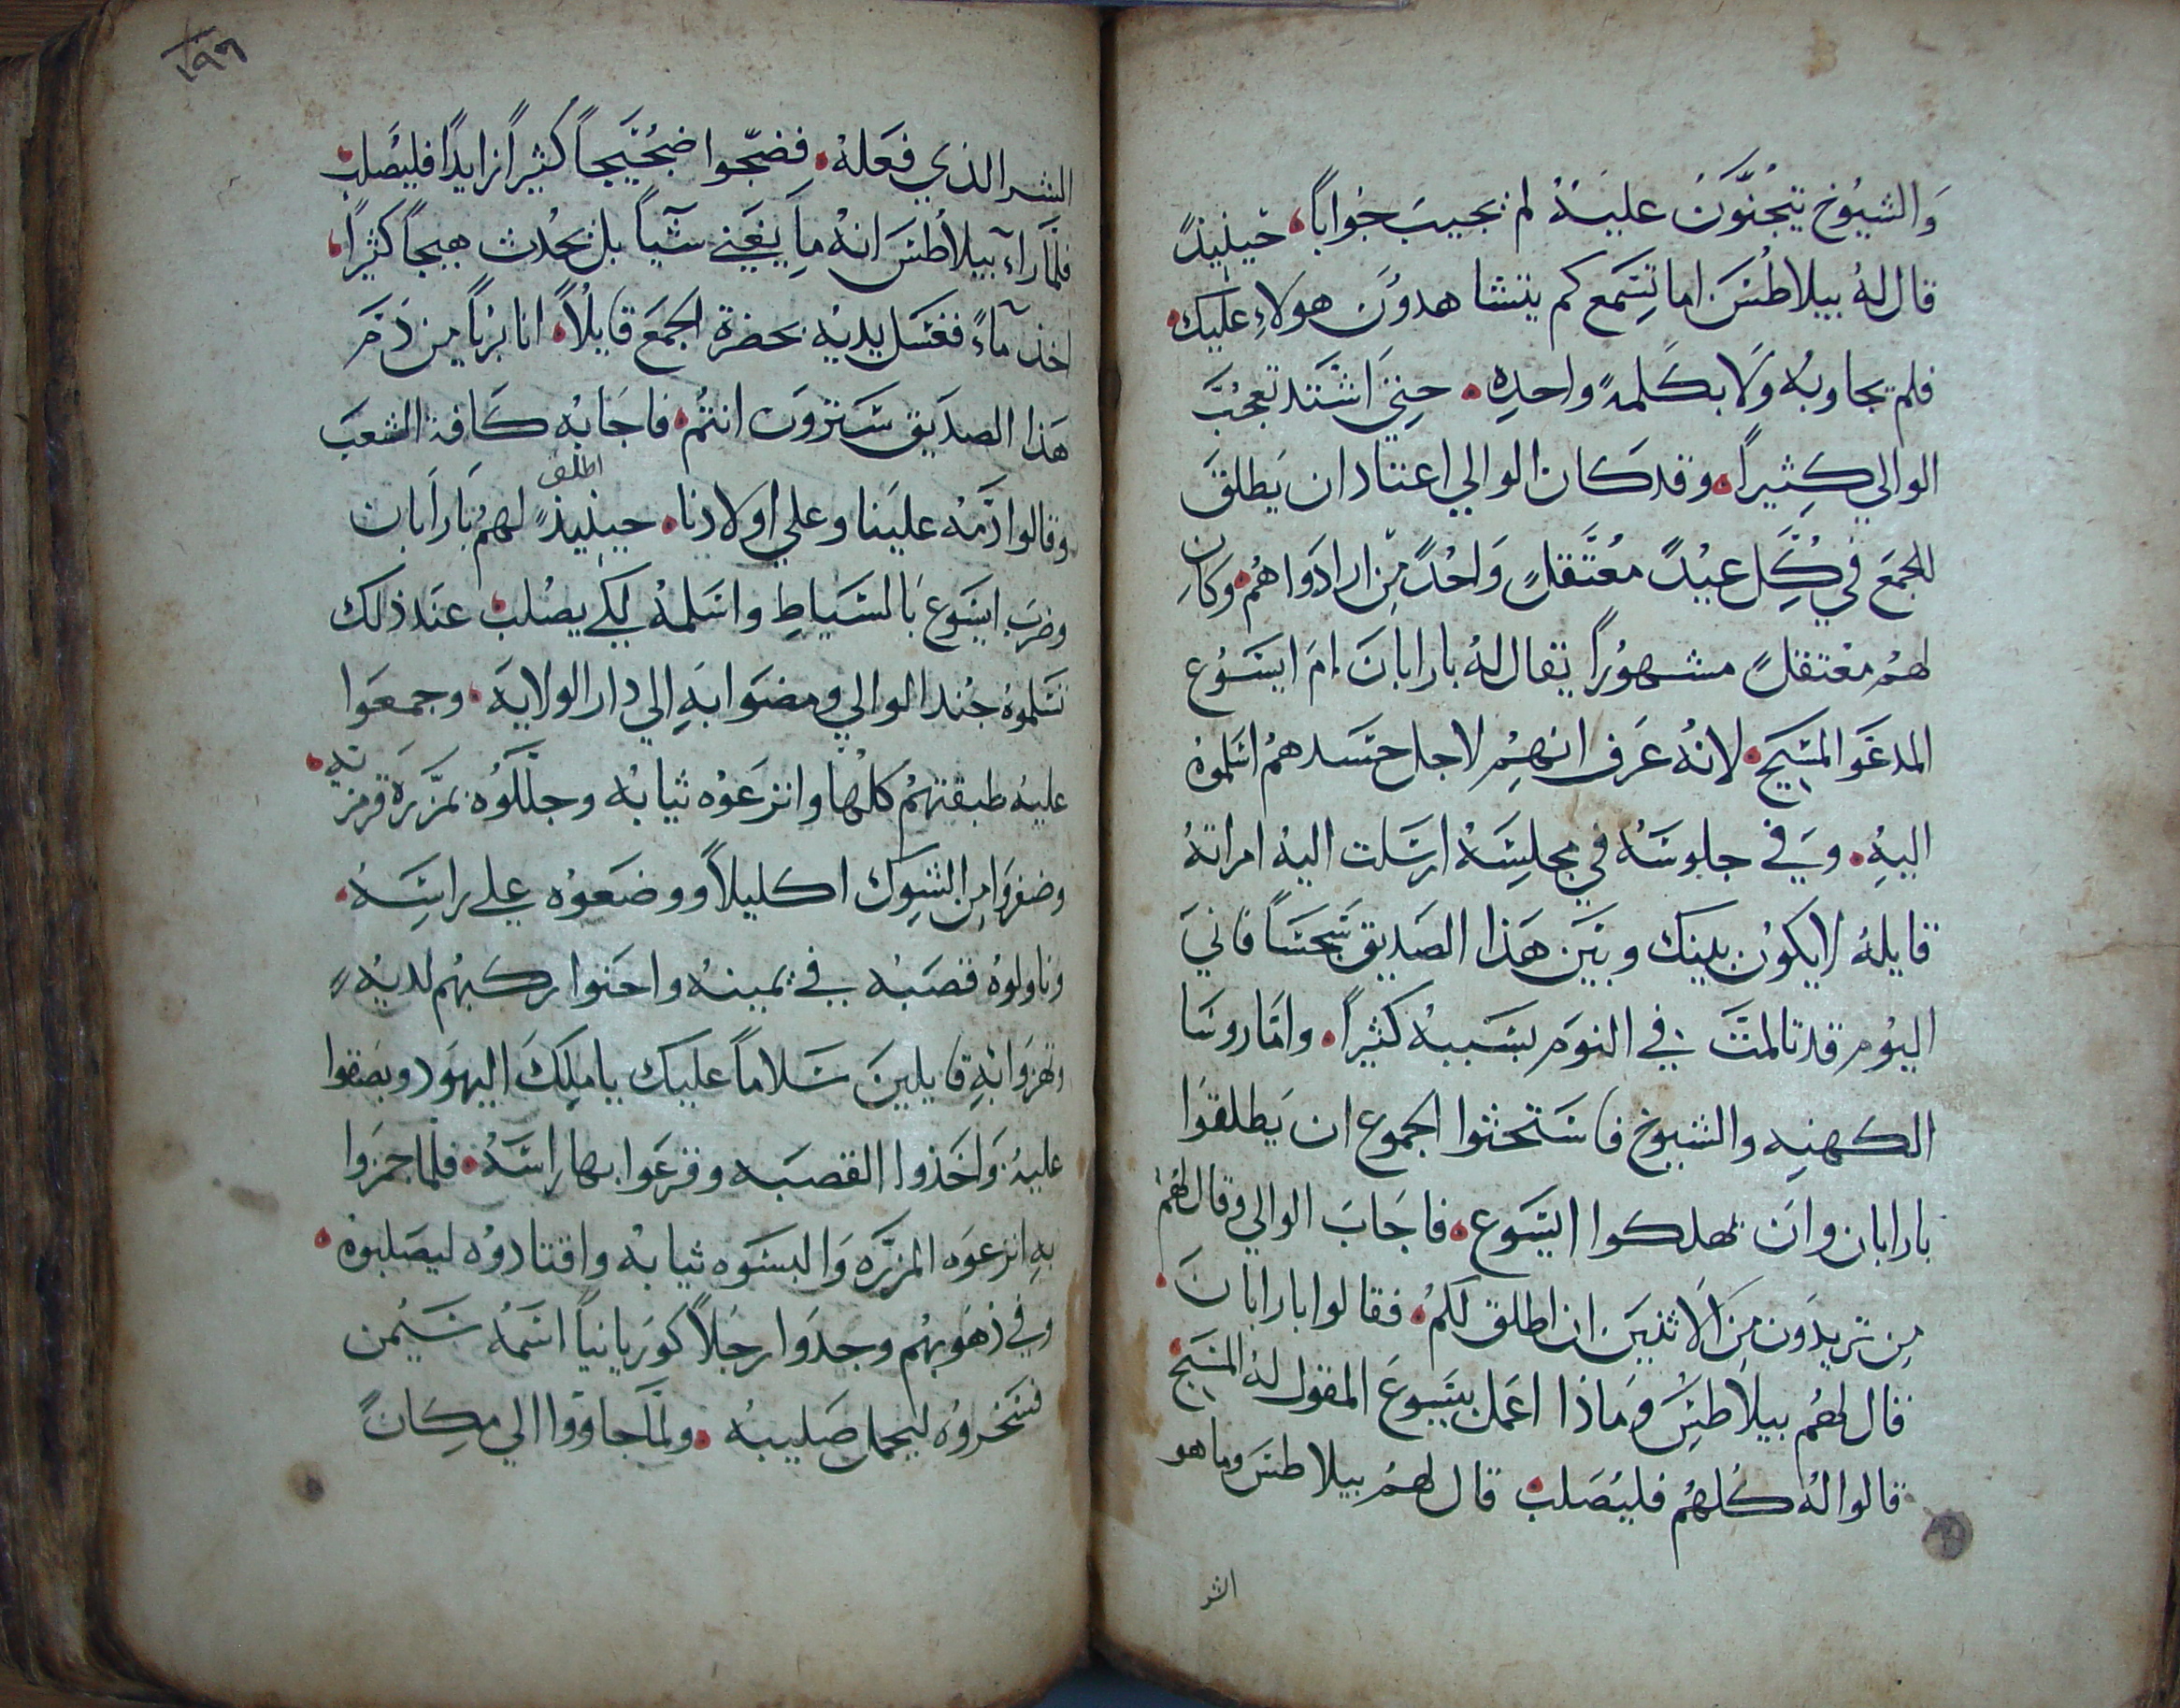 وَالشيُوخ يتجُنَّوَن عليَهُ لم يجيبَ جَواباً، حَينيذً
قال لهُ بيلاطُسَ اما تسَمع كم يتشاهدوُن هولاءِ عليك،
فلم يجاوبهُ وَلا بكَلمهٍ واحدِه، حينيَ اشتد تعجُبَ
الوالي كثِيراً، وقد كان الوالي اعتاد ان يَطلقَ
للجمَع في كُلِ عيْدً معُتَقلٍ وَاحُدً من ارادَوا همُ، وكان
لهمُ معْتقلٍ مشهوُراً يقال لهُ بارابانَ امَ ايسَوُع
المدعَو المسَيحَ، لانهُ عَرف انهمِ لاجل حسَدهمُ اسَلموهُ
اليهِ، وَفي جلوسَهُ في مجلسِهُ ارسَلت اليهُ امراتهُ
قايلهُ لايكونُ بينك وبَيَن هَذا الصَديق سَجسَاً فانيَ
اليوُم قد تالمتَ في النومَ بسَببهُ كثيراً، وامَا روسَا
الكهنهِ والشيوخ فاستَحثوا الجموع ان يَطلقوَا
بارابان وانَ يهلكوا ايسَوع، فاجَابَ الوالي وقال لهُمُ
مِن تريدَون مِن الاثنينَ ان اطلق لكمُ، فقالوا بارابانَ،
قال لهُم بيلاَطسَ وَماذا اعمَل بيَسَوعَ المقول لهُ المسَيح،
قالوا لهُ كُلهُم فليُصَلب، قال لهمُ بيلاطسَ وما هو
الشر
١٩٦
الشر الذي فعَلهُ، فضجّوا ضجُيجاً كثيراً زايداً فليُصَلب،
فلمَّا رآءَ بيلاطُسَ انهُ مِا يغَني شَياً بل يحُدث هيجاً كثيراً،
اخذ مآءً فغسَل يديْهِ بحضرة الجمَع قايلاً، انا برياً مِن دَمَ
هَذا الصدَيق سَترَوَن انتمُ، فاجَابهُ كَافة الشعَبَ
وقالوا دَمّهُ علينَا وعلي اولادنا، حينيذٍ اطلق لهمُ بَارَابان
وضرَب ايسَوع بَالسَياطِ واسَلمهُ لكي يصُلب، عنَد ذلك
تسَلموهُ جُند الوالي ومضوَا بهِ الي دار الولايهَ، وجمعَوا
عليهُ طبقتهمُ كلهُا وانتزعَوْه ثيابهُ وجلّلَوُه بمزّرَة قرمزيَه،
وضفروَا مِن الشوِك اكليلاً ووضعَوُه علي راسِهُ،
وناولوهُ قصَبهُ في يمينهُ واحنَوا ركبهُم لديهُ
وَهزوَا بهِ قايلينَ سَلاماً عليك يا ملكِ اليهوَد وبصَقوا
عليهُ، وَاخَذوا القصبَه وقرعَوا بها راسَهُ، فلماَ هزَوا
بهِ انزعَوَه المزرَّه وَالبسَوه ثيابهُ واقتادوُه ليصَلبوُه،
وفي ذهوَبهُم وجدَوا رجَلاً كورَيانياً اسَمهُ سَيُمن
فسَخروُه ليحمل صَليبهُ، ولمَا جاووَا الي مكِانً